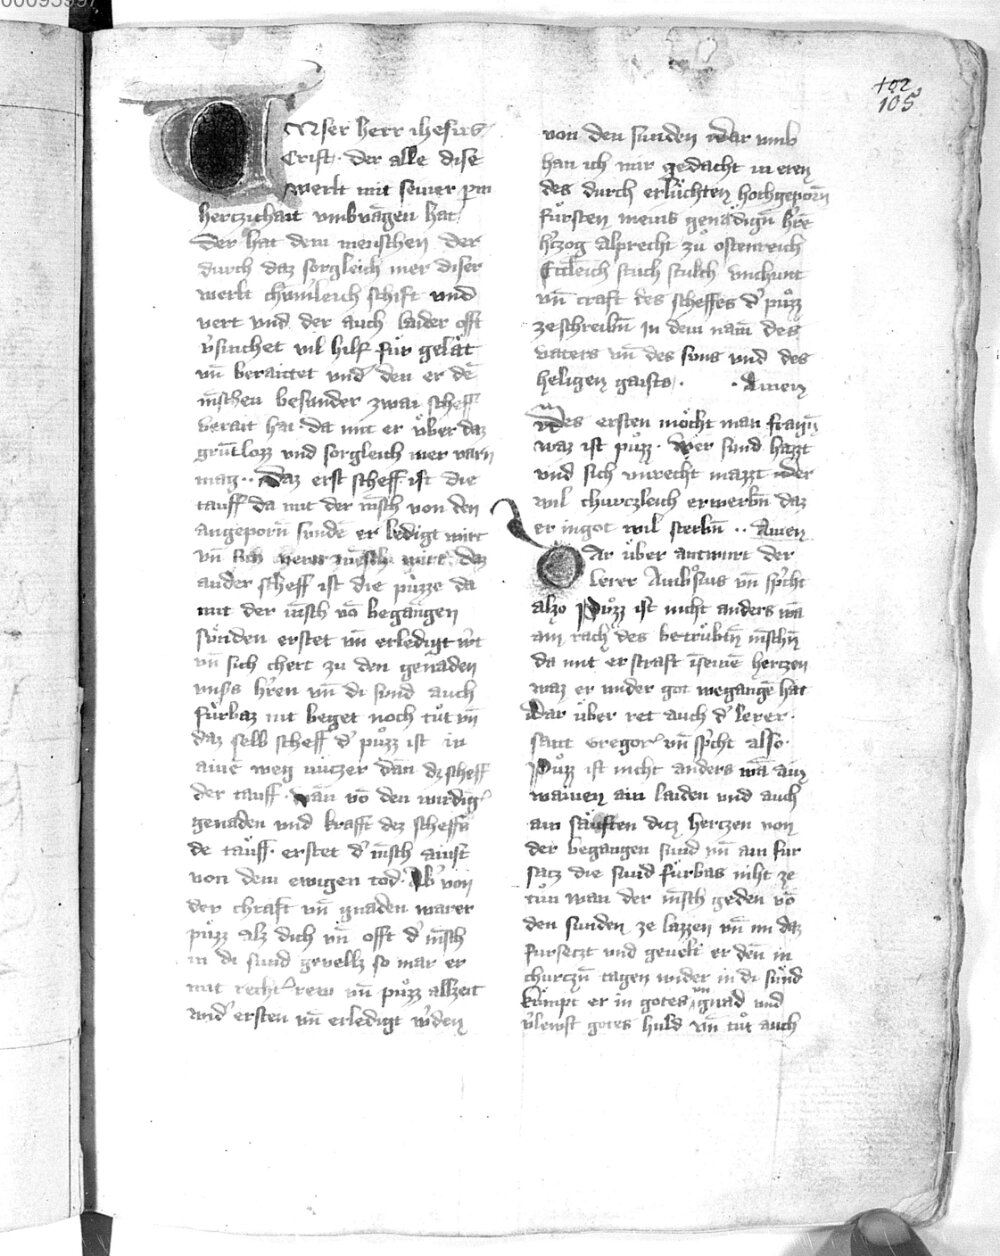 00095997
102
105
Unser herr ihesus
Crist · der alle dise
werlt mit seiner pm
hertzichait vmbvangen hat
der hat dem menschen der
durch daz sorgleich mer diser
werlt chumleich schift vnd
vert vnd der auch laider offt
v̄suchet vil hilf für gelåt
vn̄ beraittet vnd den er dē
mēschen besunder zwai scheff
berait hat da mit er v̈ber daz
grūtlozz vnd sorgleich mer varn
mag ·· Daz erst scheff ist die
tauff da mit der mēsch von den
angeporn̄ sundē er ledigt wirt
vn̄ ein newr mēsch wirt daz
ander scheff ist die půzze da
mit der mēsch vō begangen
sünden erstet vn̄ erledigt wʼt
vn̄ sich chert zu den genaden
vnsʼs hʼren vn̄ di sund auch
fürbaz nit beget noch tůt vn̄
daz selb scheff dʼ půzz ist in
ainē weg nützer dan̄ dz scheff
der tauff · wan̄ vō den wirdigʼ
genaden vnd krafft dez scheffs
de tauff · erstet dʼ mēsch ainst
von dem ewigen tod · Abʼ von
der chraft vn̄ gnaden warer
půzz alz dich vn̄ offt dʼ mēsch
in di sund gevellz so mag er
mit rechtʼ rew vn̄ půzz allzeit
widʼ ersten vn̄ erledigt wʼden
von den sunden Dar vmb
han ich mir gedacht in eren
des durch erlüchten hochgeporn̄
fürsten meins genädign̄ hʼrē
hʼtzog alprecht zů ostenreich
Etleich stuch vnchunt
vn̄ craft des scheffes dʼ půzz
ze schreibn̄ in dem nam̄ des
vaters vn̄ des suns vnd des
heligen gaists · · Amen
Des ersten möcht man fragn̄
waz ist půzz · wer sund hazzt
vnd sich vnrecht mazzt oder
wil churczleich erwerbn̄ daz
er in got wil sterbn̄ ·· Amen
Dar über antwurt der
lerer Ambʼosius vn̄ spʼcht
also Půzz ist nicht anders wā
ain rach des betrübtn̄ mēschn̄
da mit er straft in seinē hertzen
waz er wider got wegangē hat
Dar über ret auch dʼ lerer ·
sant Gregorʼ vn̄ spʼcht also ·
Půzz ist nicht anders wā ain
wainen ain laiden vnd auch
ain säuften dicz hertzen von
der begangen sund vn̄ ain für
satz die sund fürbas niht ze
tůn wan der mēsch geden vō
den sunden ze lazzen vn̄ im daz
fursetzt vnd gevelt er den̄ in
churczn̄ tagen wider in di sünd
kümpt er in gotes vn̄ gnad vnd
vʼlewst gotes huld vn̄ tůt auch